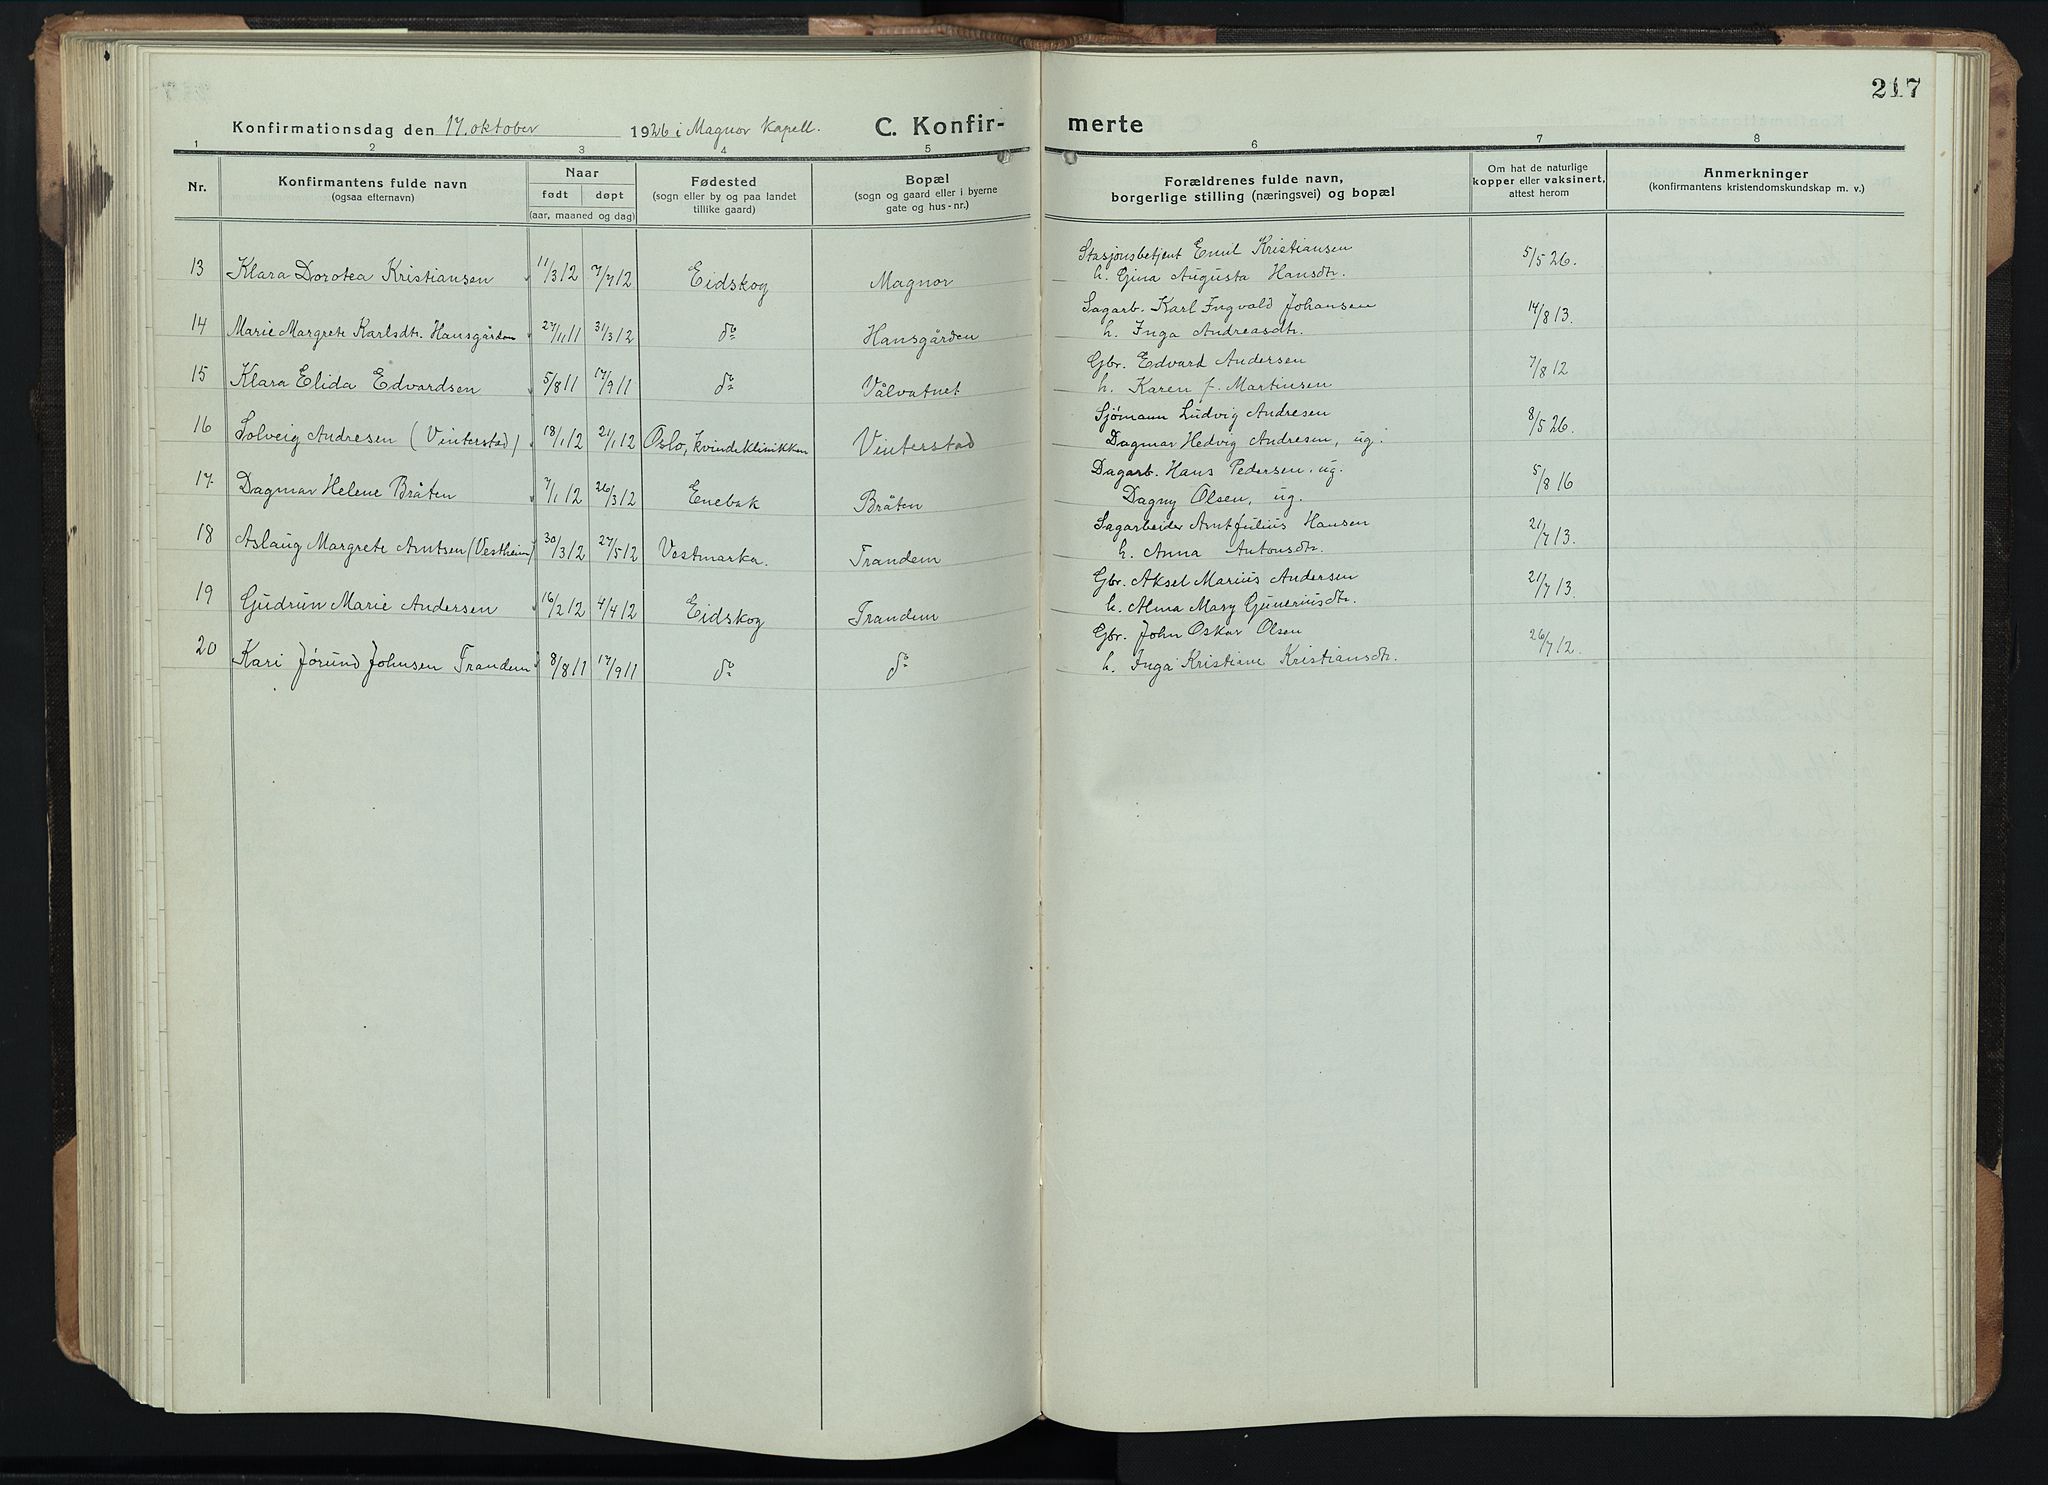 217
Konfirmationsdag den 17. oktober 1926 i Magnor Kapell. C. Konfir- merte
1 2 3 4 5 6 7 8
Nr. Konfirmantens fulde navn (ogsaa efternavn) Naar født døpt (aar, maaned og dag) Fødested (sogn eller by og paa landet tillike gaard) Bopæl (sogn og gaard eller i byerne gate og hus-nr.) Forældrenes fulde navn, borgerlige stilling (næringsvei) og bopæl Om hat de naturlige kopper eller vaksinert, attest herom Anmerkninger (konfirmantens kristendomskundskap m. v.)
13 Klara Dorotea Kristiansen 11/3 12 7/4 12 Eidskog Magnor Stasjonsbetjent Emil Kristiansen 5/5 26.
h. Gina Augusta Hansdtr.
14 Marie Margrete Karlsdtr. Hansgården 27/11 11 31/3 12 do Hansgården Sagarb. Karl Ingvald Johansen 14/8 13.
h. Inga Andreasdtr.
15 Klara Elida Edvardsen 5/8 11 17/9 11 do Vålvatnet Gbr. Edvard Andersen 7/8 12
h. Karen f. Martinsen
16 Solveig Andresen (Vinterstad) 18/1 12 21/1 12 Oslo, kvindeklinikken Vinterstad Sjømann Ludvig Andresen 8/5 26.
Dagmar Hedvig Andresen, ug.
17 Dagmar Helene Bråten 7/1 12 26/3 12 Enebak Bråten Dagarb. Hans Pedersen, ug. 5/8 16
Dagny Olsen, ug.
18 Aslaug Margrete Arntsen (Vestheim) 30/3 12 27/5 12 Vestmarka. Trandem Sagarbeider Arnt Julius Hansen 21/7 13.
h. Anna Antonsdtr.
19 Gudrun Marie Andersen 16/2 12 4/4 12 Eidskog Trandem Gbr. Aksel Marius Andersen 21/7 13.
h. Alma Mary Guneriusdtr.
20 Kari Jørund Johnsen Trandem 8/8 11 17/9 11 do do Gbr. John Oskar Olsen 26/7 12.
h. Inga Kristiane Kristiansdtr.